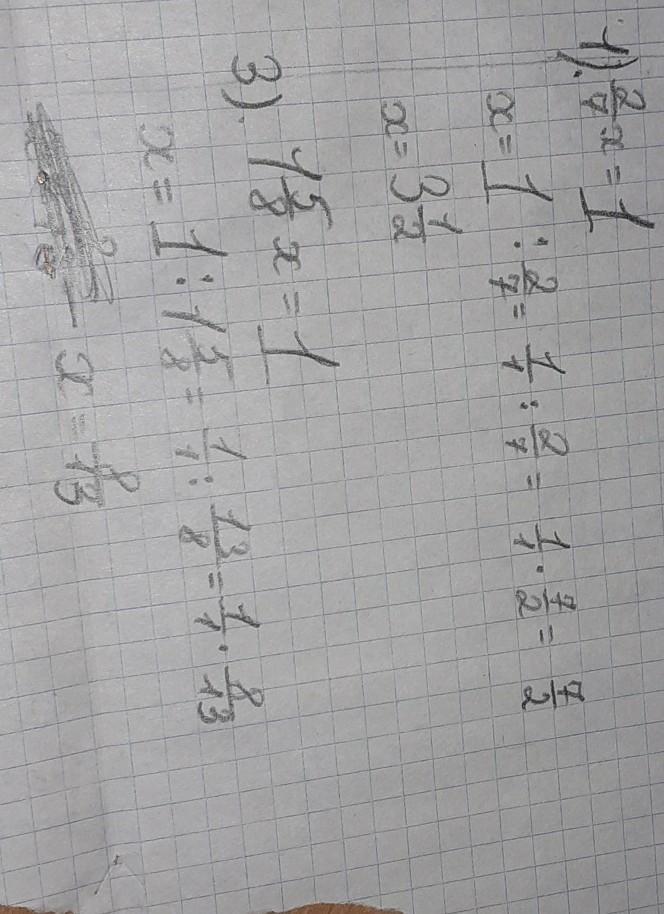 1). 2/7 x = 1
x = 1 : 2/7 = 1/1 : 2/7 = 1/1 · 7/2 = 7/2
x = 3 1/2
3). 1 5/8 x = 1
x = 1 : 1 5/8 = 1/1 : 13/8 = 1/1 · 8/13
x = 8/13